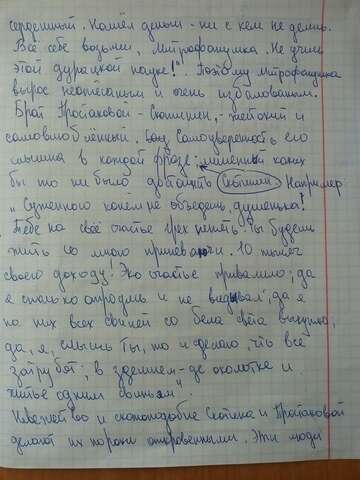 сердешный. Нашёл деньги - ни с кем не делись.
Все себе возьми, Митрофанушка. Не учись
этой дурацкой науке!". Поэтому Митрофанушка
вырос неотёсаным и очень избалованым.
Брат Простаковой - Скотинин, - жестокий и
самовлюблённый. Самоуверенность его
слышна в каждой фразе:
бы то ни было достоинств Скотинин. Например
„Суженого конём не объедешь, душенька!
Тебе на своё счастье грех пенять. Ты будешь
жить со мною припеваючи. 10 тысяч
своего доходу! Эко счастье привалило; да
я столько отродясь и не видывал; да я
на них всех свиней со бела света выкуплю;
да, я, слышь ты, то и сделаю, что все
затрубят: в здешнем-де околотке и
житье одним свиньям"
Невежество и скотоподобие Скотинина и Простаковой
делают их пороки откровенными. Эти люди